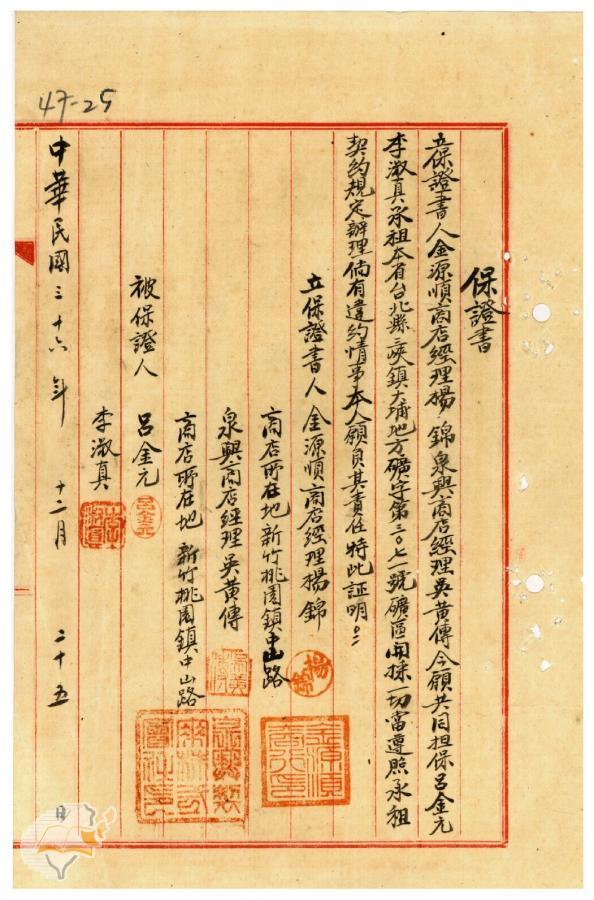 47-25
保證書
立保證書人金源順商店經理楊錦泉興商店經理吳黃傳今願共同担保呂金元
李淑真承祖本省台北縣三峽鎮大埔地方礦字第三〇七一號礦區開採一切當遵照承租
契約規定辦理倘有違約情事本人願負其責任特此証明
立保證書人金源順商店經理楊錦
商店所在地新竹桃園鎮中山路
泉興商店經理吳黃傳
商店所在地新竹桃園鎮中山路
被保證人 呂金元
李淑真
中華民國三十六年十二月二十五日
楊錦